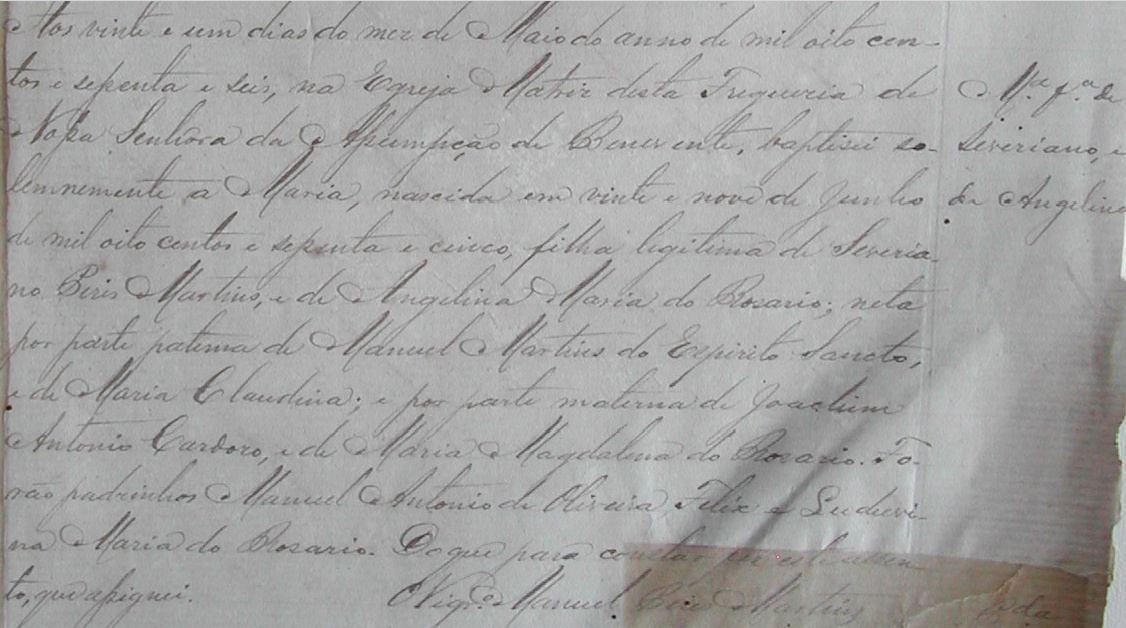 Aos vinte e um dias do mez de Maio do anno de mil oito cen-
tos e setenta e seis, na Egreja Matriz desta Freguezia de
Nossa Senhôra da Assumpção de Benevente, baptisei so-
lemnemente a Maria, nascida em vinte e nove de Junho
de mil oito centos e setenta e cinco, filha legitima de Severia-
no Piris Martins, e de Angelina Maria do Rosario; neta
por parte paterna de Manuel Martins do Espirito Sancto,
e de Maria Claudina; e por parte materna de Joachim
Antonio Cardozo, e de Maria Magdalena do Rosario. Fo-
rão padrinhos Manuel Antonio de Oliveira Felix e Luduvi-
na Maria do Rosario. Do que para constar fiz este assen
to, que assignei.
O Vigrº Manuel Pires Martins
Mª. fª. de
Severiano, e
de Angelina